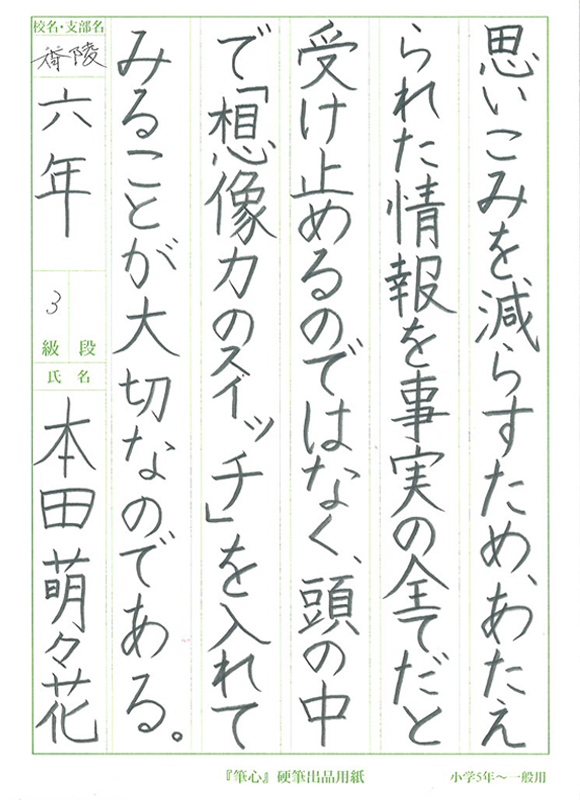 思いこみを減らすため、あたえ
られた情報を事実の全てだと
受け止めるのではなく、頭の中
で「想像力のスイッチ」を入れて
みることが大切なのである。
校名・支部名
陵
六年
3
級 段
氏 名
本田萌々花
『筆心』硬筆出品用紙
小学5年〜一般用